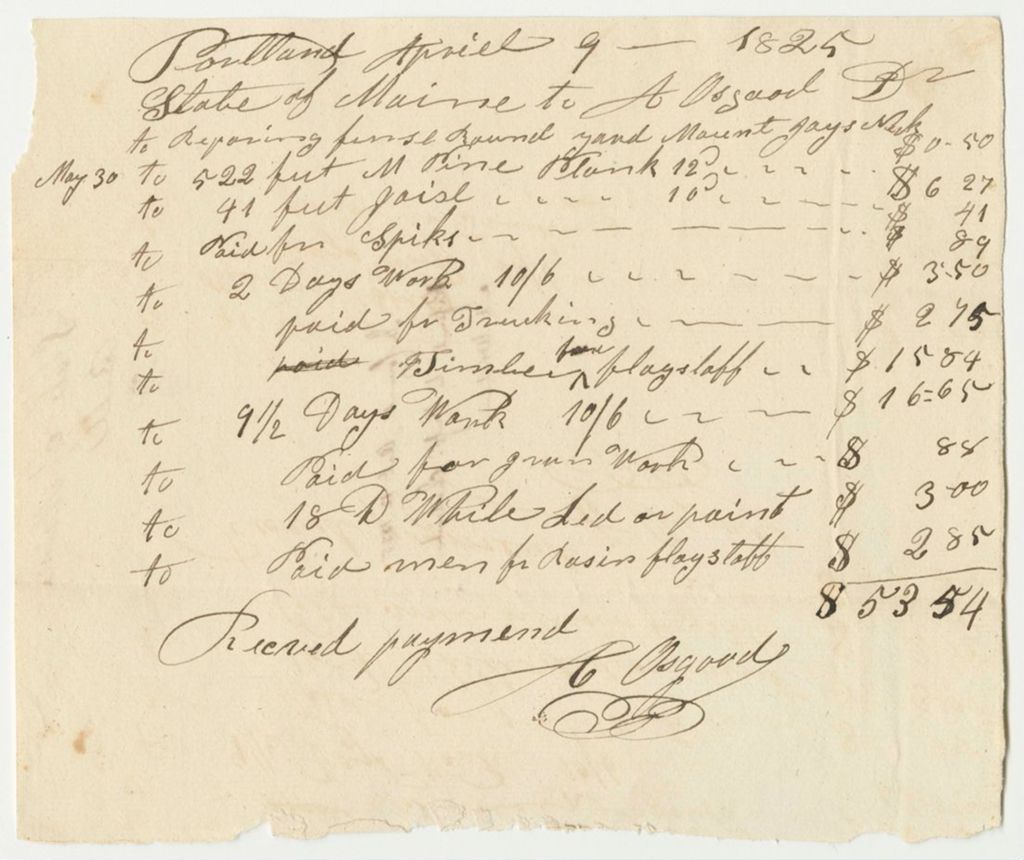 Portland Apriel 9 — 1825
State of Maine to A Osgood Dr
to Reparing fense Round yand Mount Joys Neck $0-50
May 30 to 522 feet M Pine Plank 12d $6 27
to 41 feet Joist 10d $ 41
to Paid for Spiks $ 89
to 2 Days Work 10/6 $ 3-50
to paid fr Trucking $ 2 75
to paid Timber for flagstaff $ 15 84
to 9 1/2 Days Work 10/6 $ 16=65
to Paid for Work $ 88
to 18 lb White Led or paint $ 3-00
to Paid men fr Rasin flagstaff $ 2 85
$ 53 54
Receved paymend
A Osgood